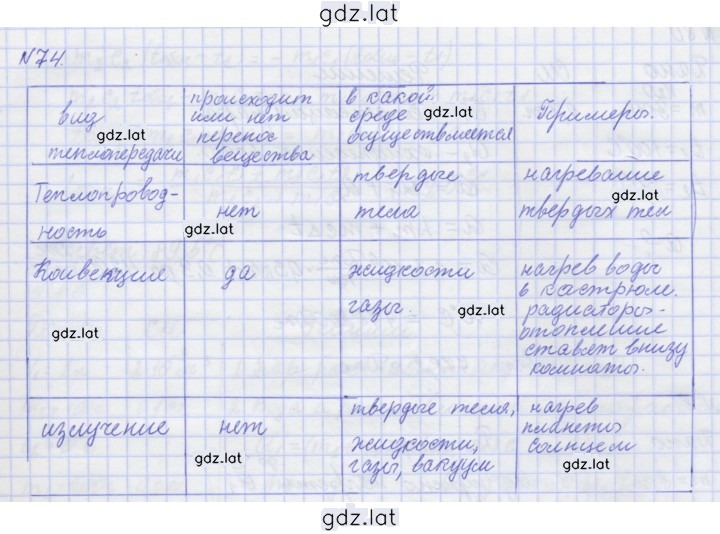 gdz.lat
N74.
вид
gdz.lat
теплопередачи
происходит
или нет
перенос
вещества
в какой
среде gdz.lat
осуществляется
Примеры.
gdz.lat
Теплопровод-
ность
нет
gdz.lat
твердые
тела
нагревание
gdz.lat
твердых тел
Конвекция
gdz.lat
да
жидкости
газы. gdz.lat
нагрев воды
в кастрюле.
радиаторы-
отопление
ставят внизу
комнаты.
излучение
нет
gdz.lat
твердые тела,
жидкости,
газы, вакуум
нагрев
планеты
солнцем
gdz.lat
gdz.lat